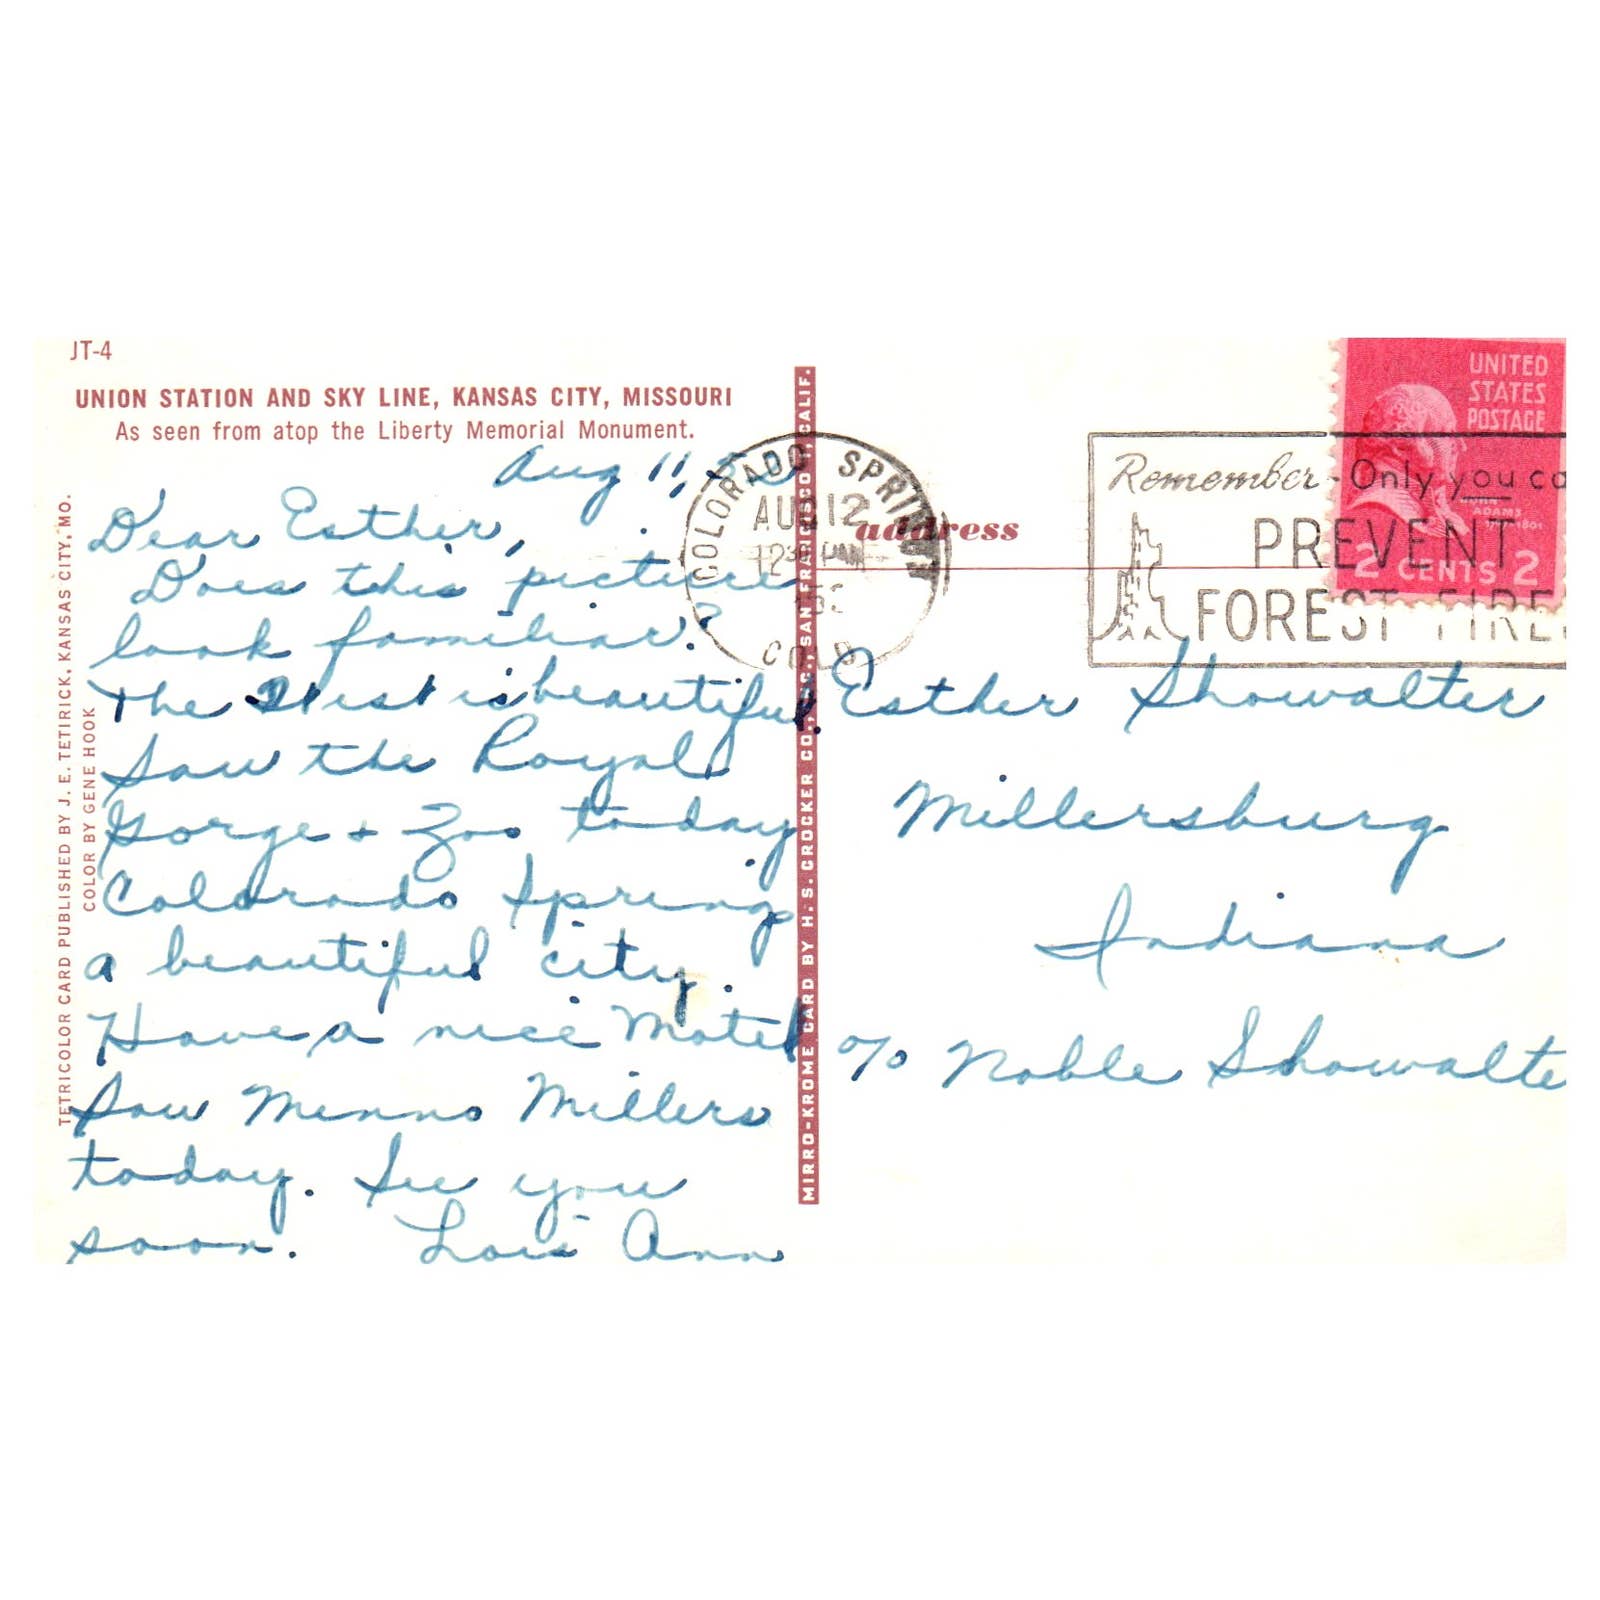 JT-4
UNION STATION AND SKY LINE, KANSAS CITY, MISSOURI
As seen from atop the Liberty Memorial Monument.
Aug 11,
Dear Esther,
Does this picture
look familiar?
The West is beautiful.
Saw the Royal
Gorge + Zoo today
Colorado Springs
a beautiful city.
Have a nice Motel
Saw Menno Millers
today. See you
soon. Lois Ann
TETRICOLOR CARD PUBLISHED BY J. E. TETIRICK, KANSAS CITY, MO.
COLOR BY GENE HOOK
MIRRO-KROME CARD BY H. S. CROCKER CO., SAN FRANCISCO 1, CALIF.
COLORADO SPRINGS
AUG 12
COLO
address
Remember - Only you ca
PREVENT
FOREST FIRE
UNITED
STATES
POSTAGE
JOHN
ADAMS
2 CENTS 2
Esther Showalter
Millersburg
Indiana
c/o Noble Showalte